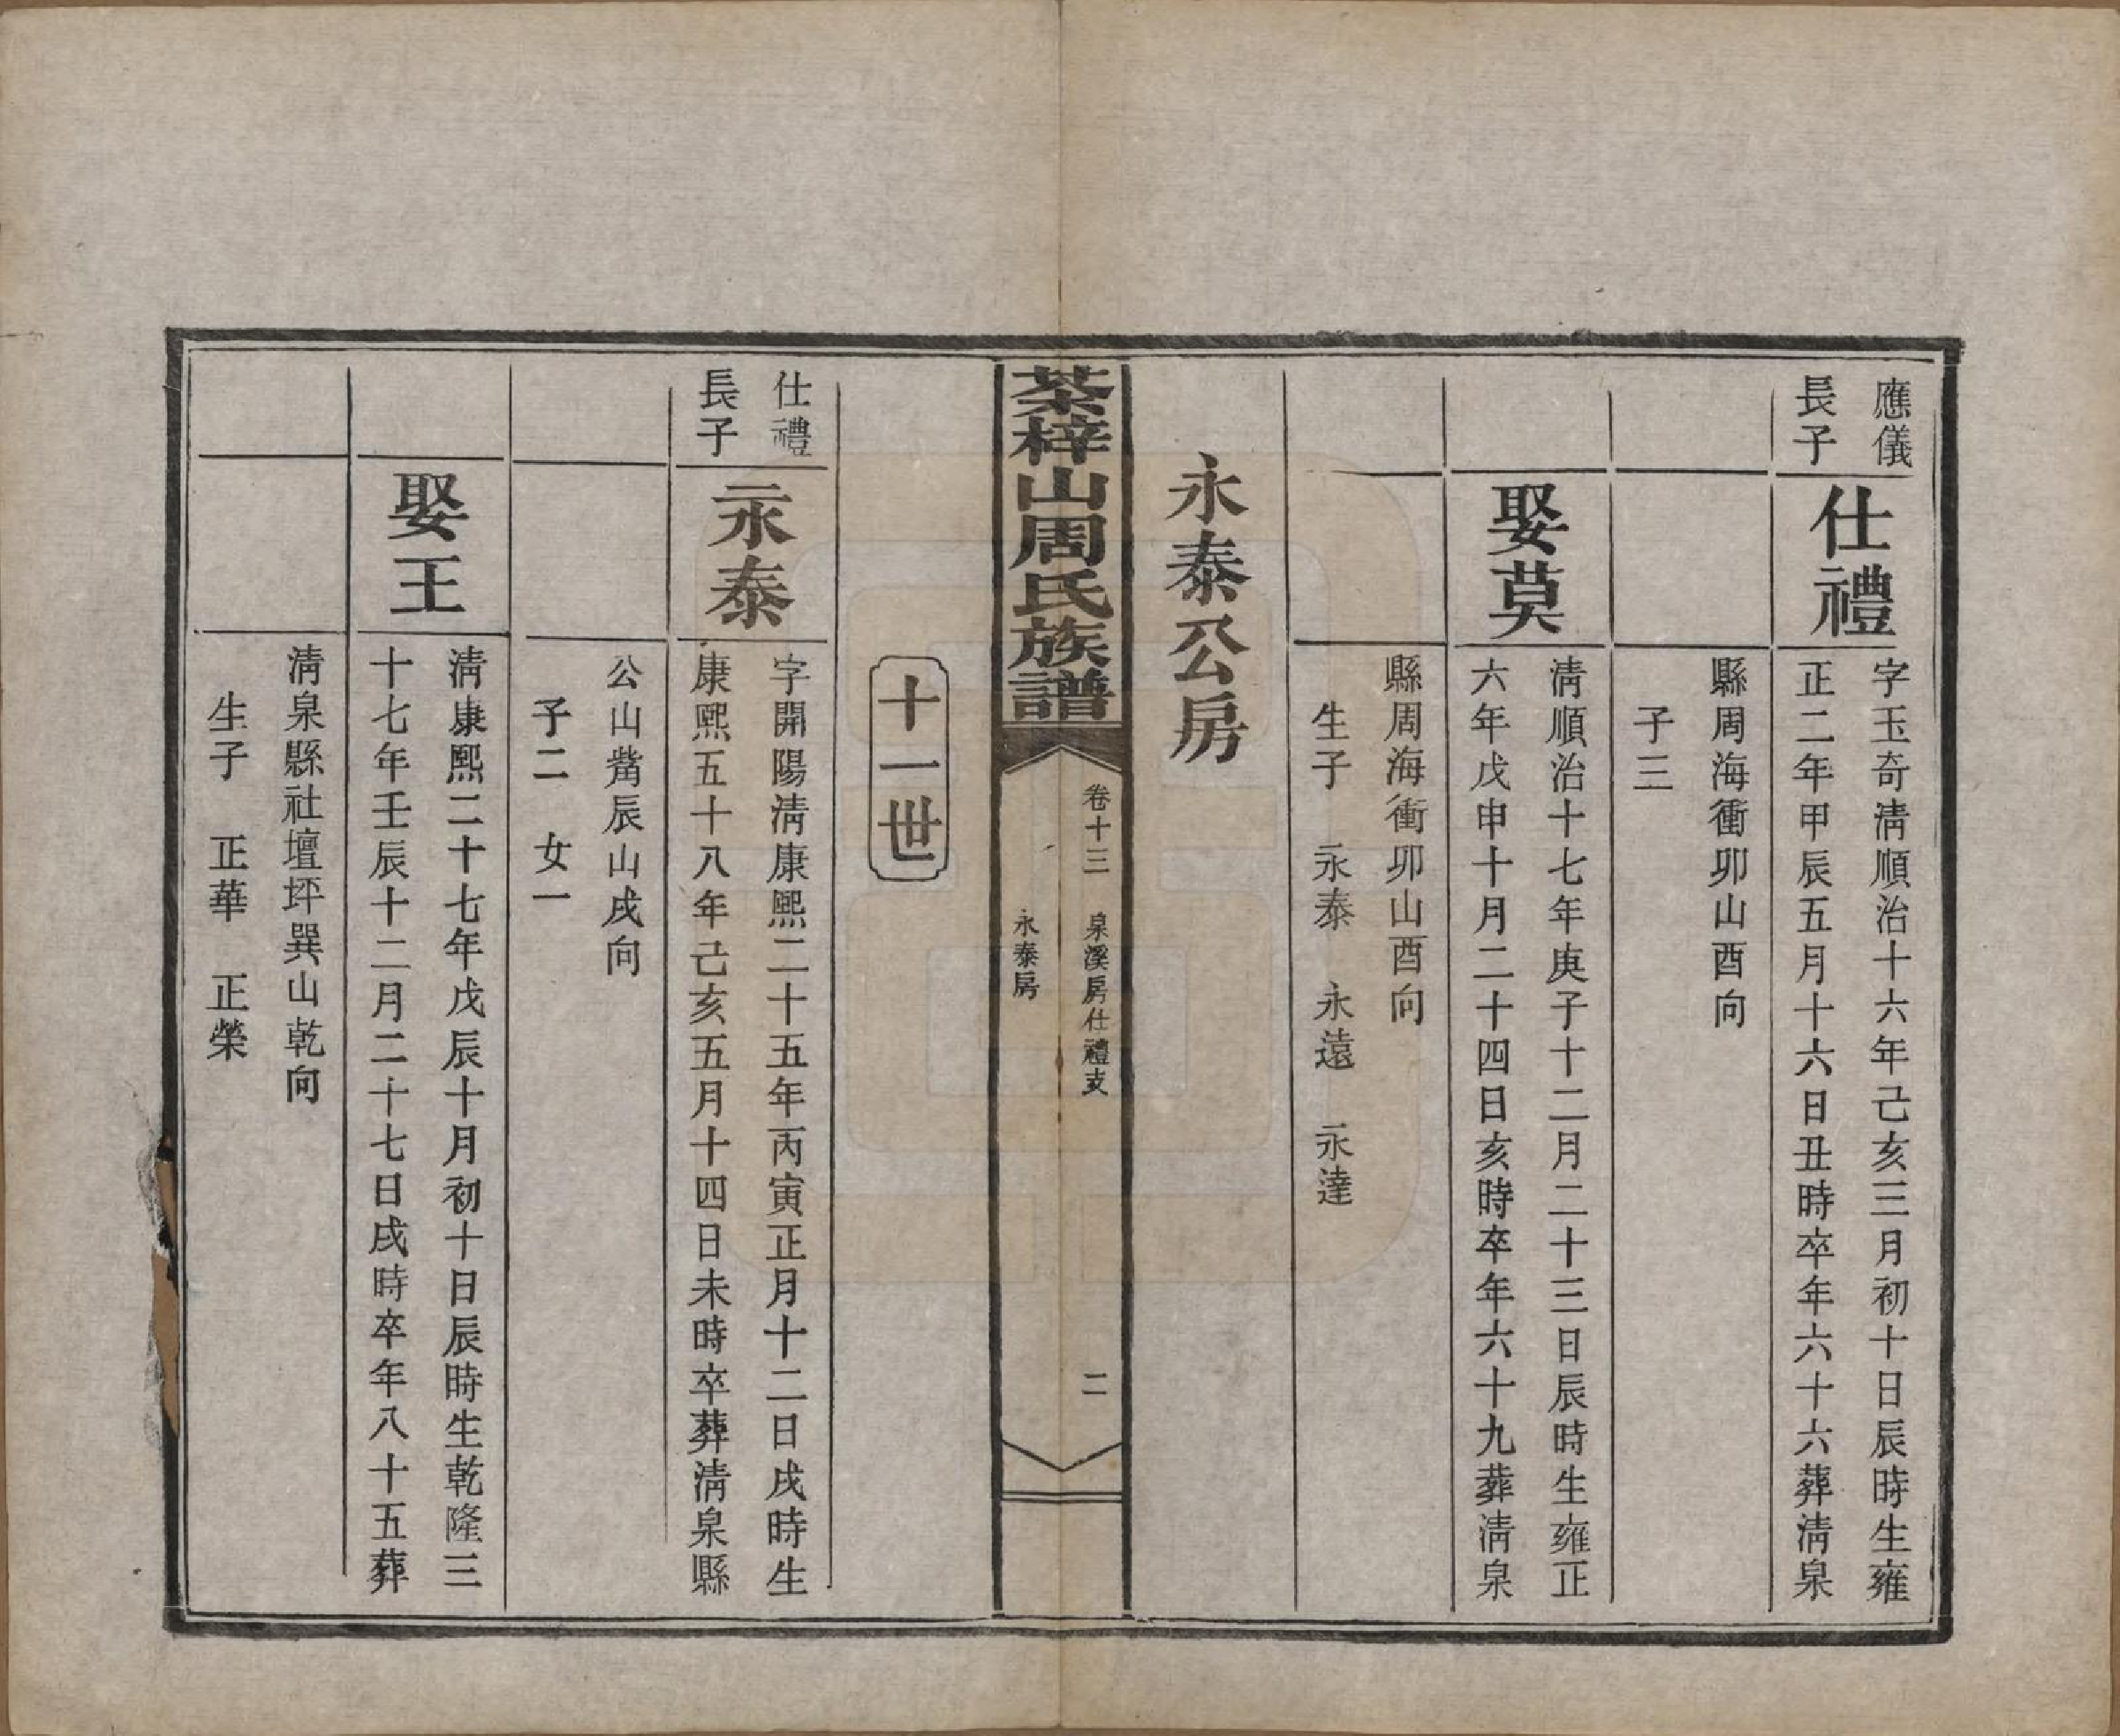 應儀
長子
仕禮
字玉奇淸順治十六年己亥三月初十日辰時生雍
正二年甲辰五月十六日丑時卒年六十六葬淸泉
縣周海衝卯山酉向
子三
娶莫
淸順治十七年庚子十二月二十三日辰時生雍正
六年戊申十月二十四日亥時卒年六十九葬淸泉
縣周海衝卯山酉向
生子 永泰 永遠 永達
永泰公房
茶梓山周氏族譜
卷十三 泉溪房仕禮支
永泰房
二
十一世
仕禮
長子
永泰
字開陽淸康熙二十五年丙寅正月十二日戌時生
康熙五十八年己亥五月十四日未時卒葬淸泉縣
公山觜辰山戌向
子二 女一
娶王
淸康熙二十七年戊辰十月初十日辰時生乾隆三
十七年壬辰十二月二十七日戌時卒年八十五葬
淸泉縣社壇坪巽山乾向
生子 正華 正榮